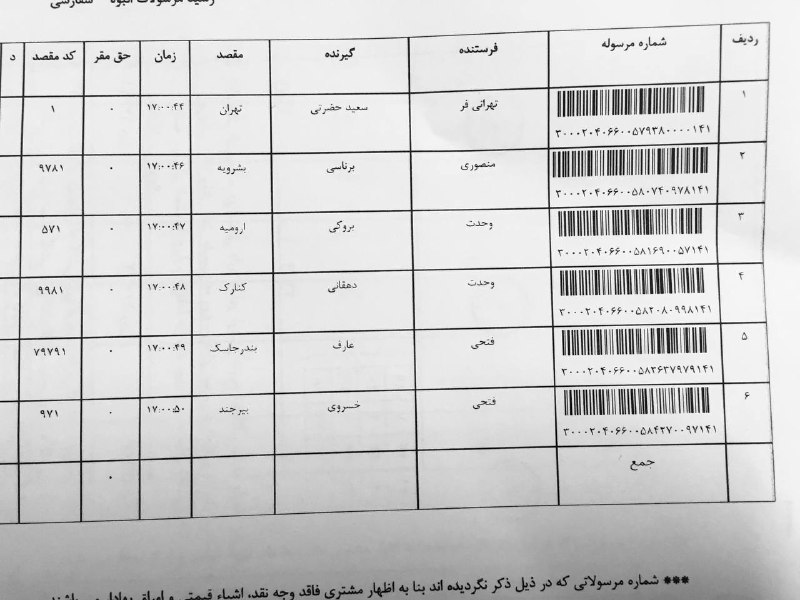 رسید مرسولات انبوه - سفارشی
ردیف شماره مرسوله فرستنده گیرنده مقصد زمان حق مقر کد مقصد د
۱ تهرانی فر سعید حضرتی تهران ۱۷:۰۰:۴۴ ۰ ۱
۳۰۰۰۲۰۴۰۶۶۰۰۵۷۹۳۸۰۰۰۰۱۴۱
۲ منصوری برناسی بشرویه ۱۷:۰۰:۴۶ ۰ ۹۷۸۱
۳۰۰۰۲۰۴۰۶۶۰۰۵۸۰۷۴۰۹۷۸۱۴۱
۳ وحدت بروکی ارومیه ۱۷:۰۰:۴۷ ۰ ۵۷۱
۳۰۰۰۲۰۴۰۶۶۰۰۵۸۱۶۹۰۰۵۷۱۴۱
۴ وحدت دهقانی کنارک ۱۷:۰۰:۴۸ ۰ ۹۹۸۱
۳۰۰۰۲۰۴۰۶۶۰۰۵۸۲۰۸۰۹۹۸۱۴۱
۵ فتحی عارف بندرجاسک ۱۷:۰۰:۴۹ ۰ ۷۹۷۹۱
۳۰۰۰۲۰۴۰۶۶۰۰۵۸۳۶۳۷۹۷۹۱۴۱
۶ فتحی خسروی بیرجند ۱۷:۰۰:۵۰ ۰ ۹۷۱
۳۰۰۰۲۰۴۰۶۶۰۰۵۸۴۲۷۰۰۹۷۱۴۱
جمع ۰
*** شماره مرسولاتی که در ذیل ذکر نگردیده اند بنا به اظهار مشتری فاقد وجه نقد، اشیاء قیمتی و اوراق بهادار می باشند